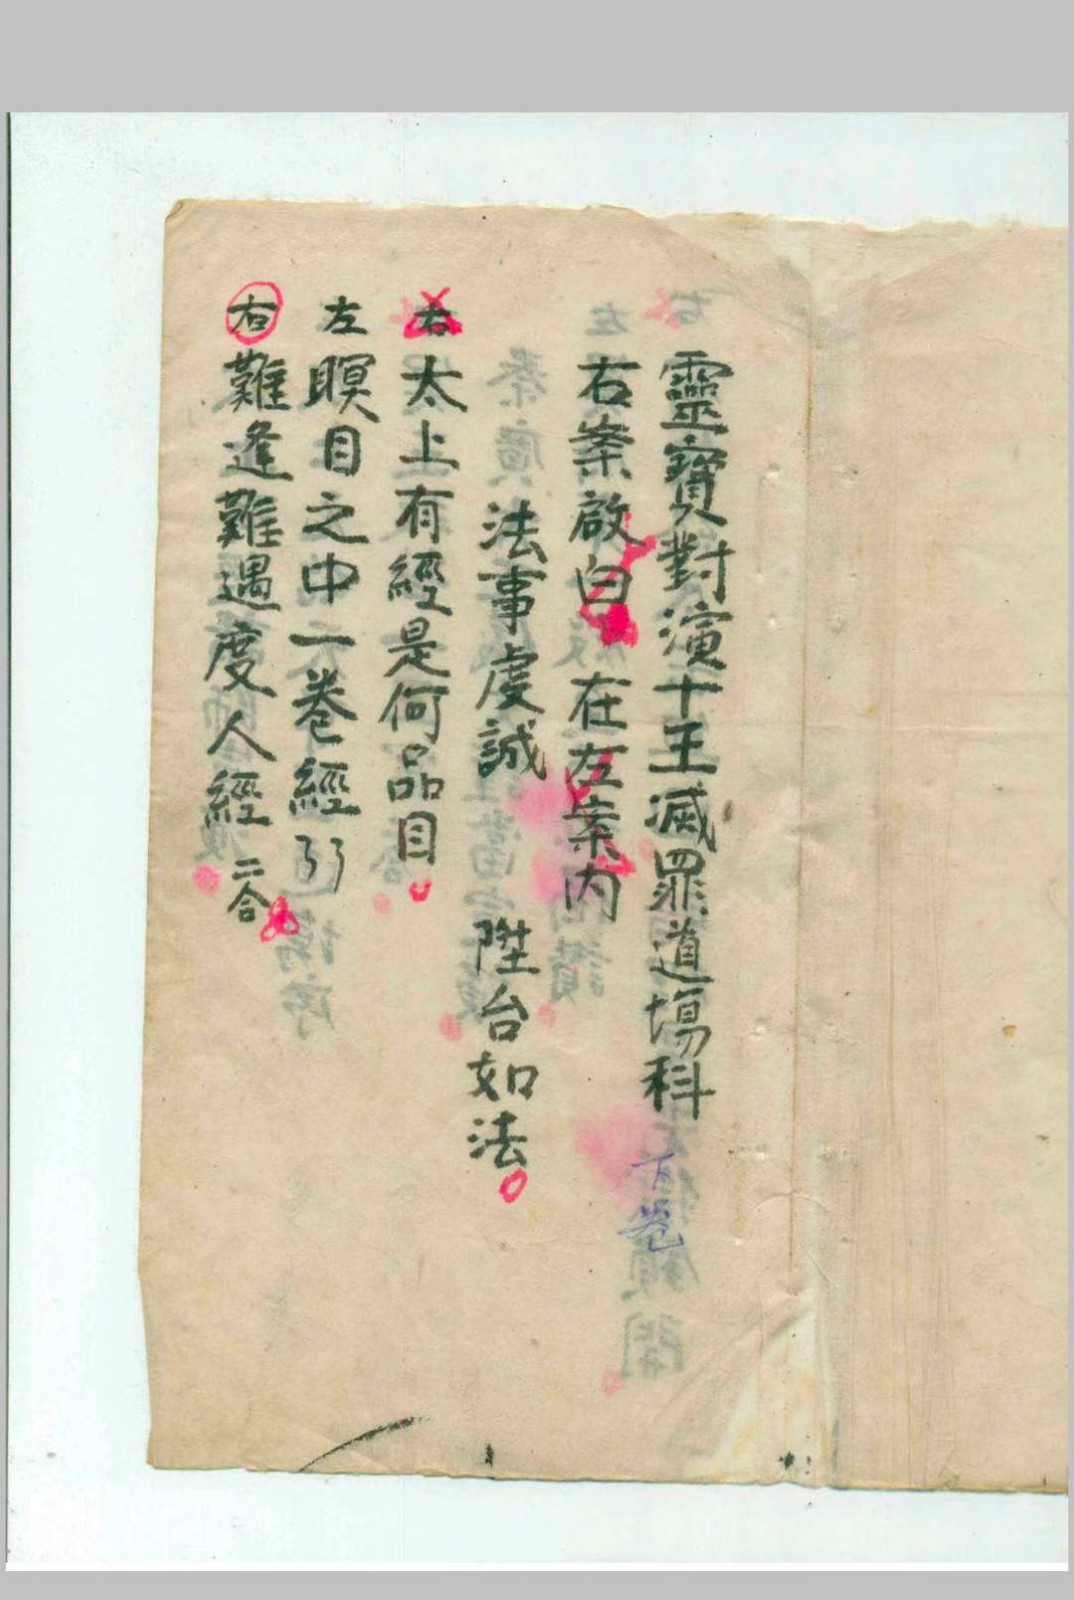 靈寶對演十王滅罪道場科 下卷
右案啟白 在左案內
法事虔誠 陞台如法
右 太上有經是何品目
左 瞑目之中一卷經
右 難逢難遇度人經 二合